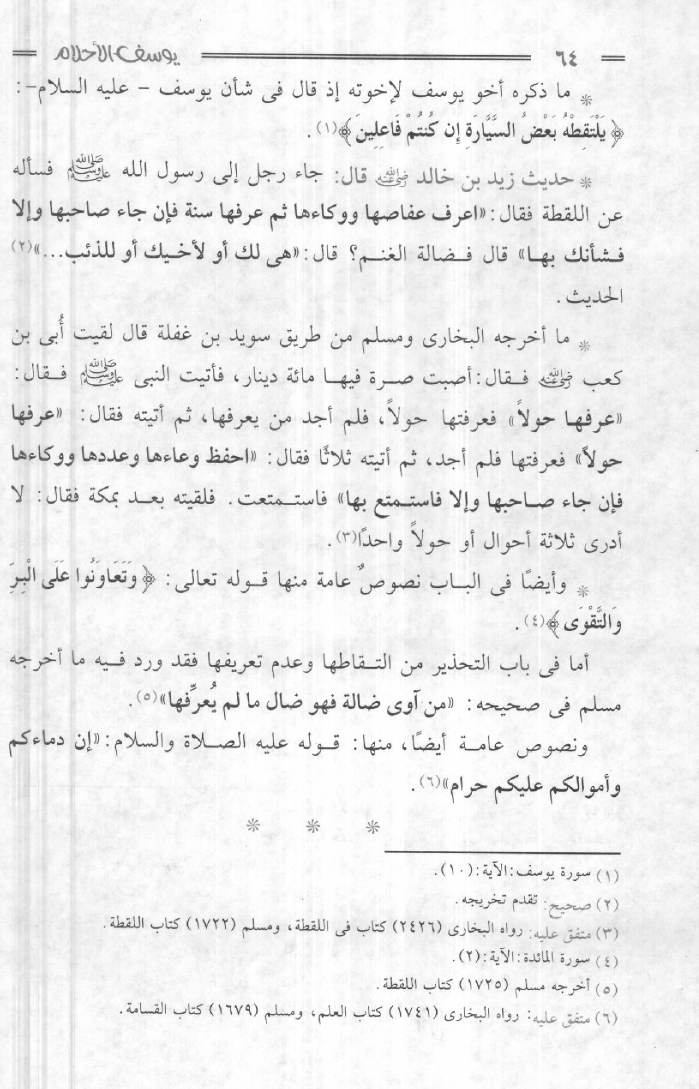 ٦٤ يوسف الأحلام
* ما ذكره أخو يوسف لإخوته إذ قال فى شأن يوسف - عليه السلام-:
﴿ يَلْتَقِطْهُ بَعْضُ السَّيَّارَةِ إِن كُنتُمْ فَاعِلِينَ ﴾(١).
* حديث زيد بن خالد رضي الله عنه قال: جاء رجل إلى رسول الله ﷺ فسأله
عن اللقطة فقال: «اعرف عفاصها ووكاءها ثم عرفها سنة فإن جاء صاحبها وإلا
فـشأنك بهـا» قال فـضالة الغنـم؟ قال: «هى لك أو لأخـيك أو للذئب...»(٢)
الحديث.
* ما أخرجه البخارى ومسلم من طريق سويد بن غفلة قال لقيت أُبى بن
كعب رضي الله عنه فـقال: أصبت صـرة فيهـا مائة دينار، فأتيت النبى ﷺ فـقال:
«عرفهـا حولاً» فعرفتها حولاً، فلم أجد من يعرفها، ثم أتيته فقال: «عرفها
حولاً» فعرفتها فلم أجد، ثم أتيته ثلاثًا فقال: «احفظ وعاءها وعددها ووكاءها
فإن جاء صـاحبها وإلا فاستمتع بها» فاستـمتعت. فلقيته بعـد بمكة فقال: لا
أدرى ثلاثة أحوال أو حولاً واحدًا(٣).
* وأيضًا فى البـاب نصوصٌ عامة منها قـوله تعالى: ﴿ وَتَعَاوَنُوا عَلَى الْبِرِّ
وَالتَّقْوَى ﴾(٤).
أما فى باب التحذير من التـقاطها وعدم تعريفها فقد ورد فـيه ما أخرجه
مسلم فى صحيحه: «من آوى ضالة فهو ضال ما لم يُعرِّفها»(٥).
ونصوص عامـة أيضًا، منها: قـوله عليه الصـلاة والسلام: «إن دماءكم
وأموالكم عليكم حرام»(٦).
* * *
(١) سورة يوسف: الآية: (١٠).
(٢) صحيح: تقدم تخريجه.
(٣) متفق عليه: رواه البخارى (٢٤٢٦) كتاب فى اللقطة، ومسلم (١٧٢٢) كتاب اللقطة.
(٤) سورة المائدة: الآية: (٢).
(٥) أخرجه مسلم (١٧٢٥) كتاب اللقطة.
(٦) متفق عليه: رواه البخارى (١٧٤١) كتاب العلم، ومسلم (١٦٧٩) كتاب القسامة.